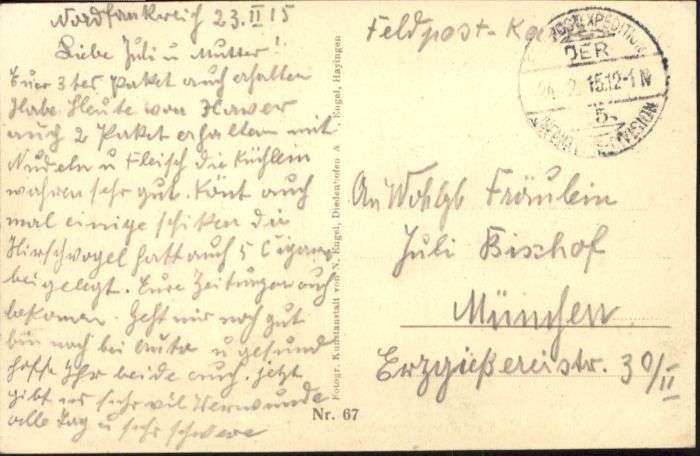 Nordfankreich 23.II 15
Liebe Juli u Mutter!
Euer 3tes Paket auch erhalten
Habe. Heute von Xaver
auch 2 Paket erhalten mit
Nudeln u Fleisch die Küchlein
wahren sehr gut. Könt auch
mal einige schiken die
Hirschvogel hatt auch 5 Cigarr
beigelegt. Eure Zeitungen auch
bekomen. Geht mir noch gut
bin noch bei Auto u gesund
hoffe Ihr beide auch. jetzt
gibt es sehr vil Verwunde
alle Tag u sehr schwere
Fotogr. Kunstanstalt von N. Engel, Diedenhofen & Engel, Hayingen
Nr. 67
Feldpost-Ka
POSTEXPEDITION
DER
2 15.12-1N
5.
DIVISION
An Wohlgb Fräulein
Juli Bischof
München
Erzgießereistr. 30/II